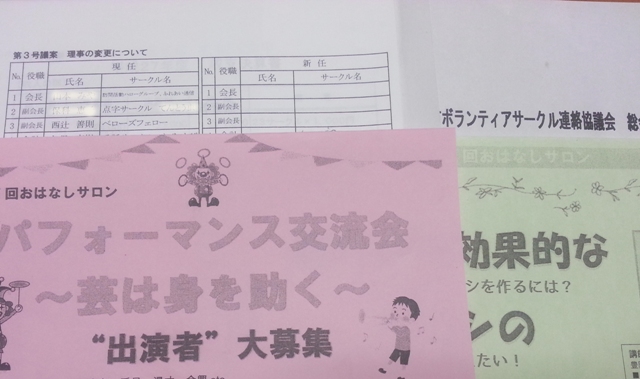 第3号議案 理事の変更について
現 任 新 任
No. 役職 氏名 サークル名 No. 役職 氏名 サークル名
1 会長 1 会長
2 副会長 点字サークル 2 副会長
3 副会長 西辻 善則 ベローズフェロー 3 副会長
ボランティアサークル連絡協議会 総
回おはなしサロン
パフォーマンス交流会
～芸は身を助く～
“出演者” 大募集
回おはなしサロン
効果的な
シを作るには？
シの
たい！